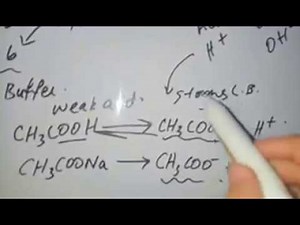 H+ OH
6
Buffer.
weak acid.
strong C.B.
CH3COOH ⇌ CH3COO H+
CH3COONa → CH3COO-